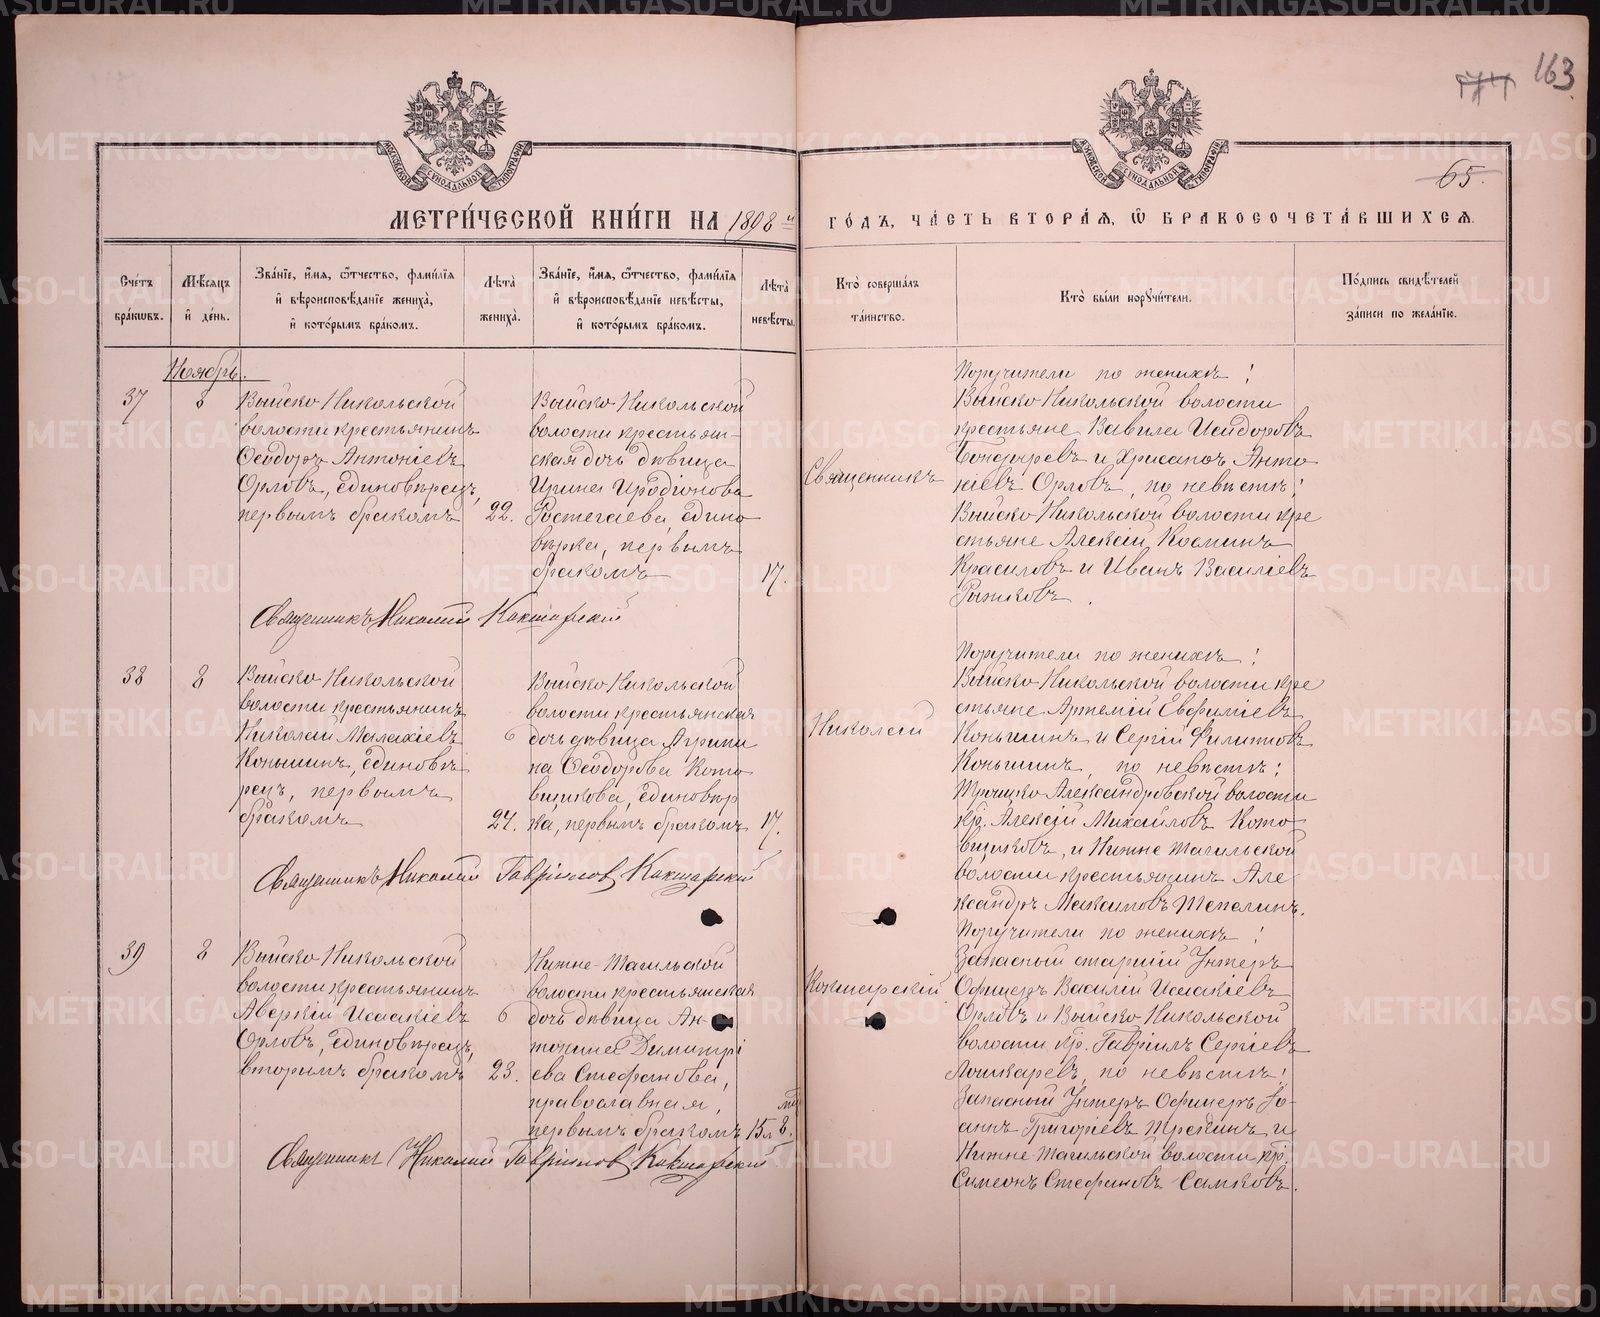 163
65.
МОСКОВСКОЙ СѴНОДАЛЬНОЙ ТИПОГРАФІИ
МОСКОВСКОЙ СѴНОДАЛЬНОЙ ТИПОГРАФІИ
МЕТРИ́ЧЕСКОЙ КНИ́ГИ НА 1898 й
ГО́ДЪ, ЧА́СТЬ ВТОРА́Я, Ѽ БРАКОСОЧЕТА́ВШИХСЯ.
Сче́тъ бра́кѡвъ.
Мѣ́сяцъ и҆ де́нь.
Зва́нїе, и҆́мя, ѻ҆́тчество, фами́лїя
и҆ вѣроисповѣ́данїе жениха̀,
и҆ кото́рымъ бра́комъ.
Лѣта̀ жениха̀.
Зва́нїе, и҆́мя, ѻ҆́тчество, фами́лїя
и҆ вѣроисповѣ́данїе невѣ́сты,
и҆ кото́рымъ бра́комъ.
Лѣта̀ невѣ́сты.
Кто̀ соверша́лъ
та́инство.
Кто̀ бы́ли порꙋчи́тели.
По́дпись свидѣ́телей
за́писи по жела́нїю.
Ноябрь.
37
8
Выйско Никольской
волости крестьянинъ
Ѳеодоръ Антоніевъ
Орловъ, единовѣрецъ,
первымъ бракомъ
22.
Выйско Никольской
волости крестьян-
ская дочь дѣвица
Ирина Иродіонова
Ростегаева, едино
вѣрка, первымъ
бракомъ
17.
Священникъ Николай Кокшарскій
Поручители по женихѣ:
Выйско Никольской волости
крестьяне Вавила Исидоровъ
Бондыревъ и Хрисанѳъ Анто
ніевъ Орловъ, по невѣстѣ:
Выйско Никольской волости кре
стьяне Алексій Косминъ
Красиловъ и Иванъ Василіевъ
Рыжковъ.
Священникъ
Николай
Кокшарскій
38
8
Выйско Никольской
волости крестьянинъ
Николай Малахіевъ
Коньшинъ, единовѣ
рецъ, первымъ
бракомъ
24.
Выйско Никольской
волости крестьянская
дочь дѣвица Агрипи
на Ѳеодорова Кото
вщикова, единовѣр
ка, первымъ бракомъ
17.
Священникъ Николай Гавріиловъ Кокшарскій
Поручители по женихѣ:
Выйско Никольской волости кре
стьяне Артемій Евфиміевъ
Коньшинъ и Сергій Филиповъ
Коньшинъ, по невѣстѣ:
Троицко Александровской волости
кр. Алексій Михайловъ Кото
вщиковъ, и Нижне Тагильской
волости крестьянинъ Але
ксандръ Максимовъ Шепелинъ.
39
8
Выйско Никольской
волости крестьянинъ
Аверкій Исаакіевъ
Орловъ, единовѣрецъ,
вторымъ бракомъ
23.
Нижне-Тагильской
волости крестьянская
дочь дѣвица Ан-
тонина Димитрі
ева Стефанова,
православная,
первымъ бракомъ
15 л 8.
Священникъ Николай Гавріиловъ Кокшарскій
Поручители по женихѣ:
Запасный старшій Унтеръ
Офицеръ Василій Исаакіевъ
Орловъ и Выйско Никольской
волости кр. Гавріилъ Сергіевъ
Лошкаревъ, по невѣстѣ:
Запасный Унтеръ Офицеръ Іо-
аннъ Григоріевъ Трескинъ и
Нижне-Тагильской волости кр.
Симеонъ Стефановъ Самковъ.